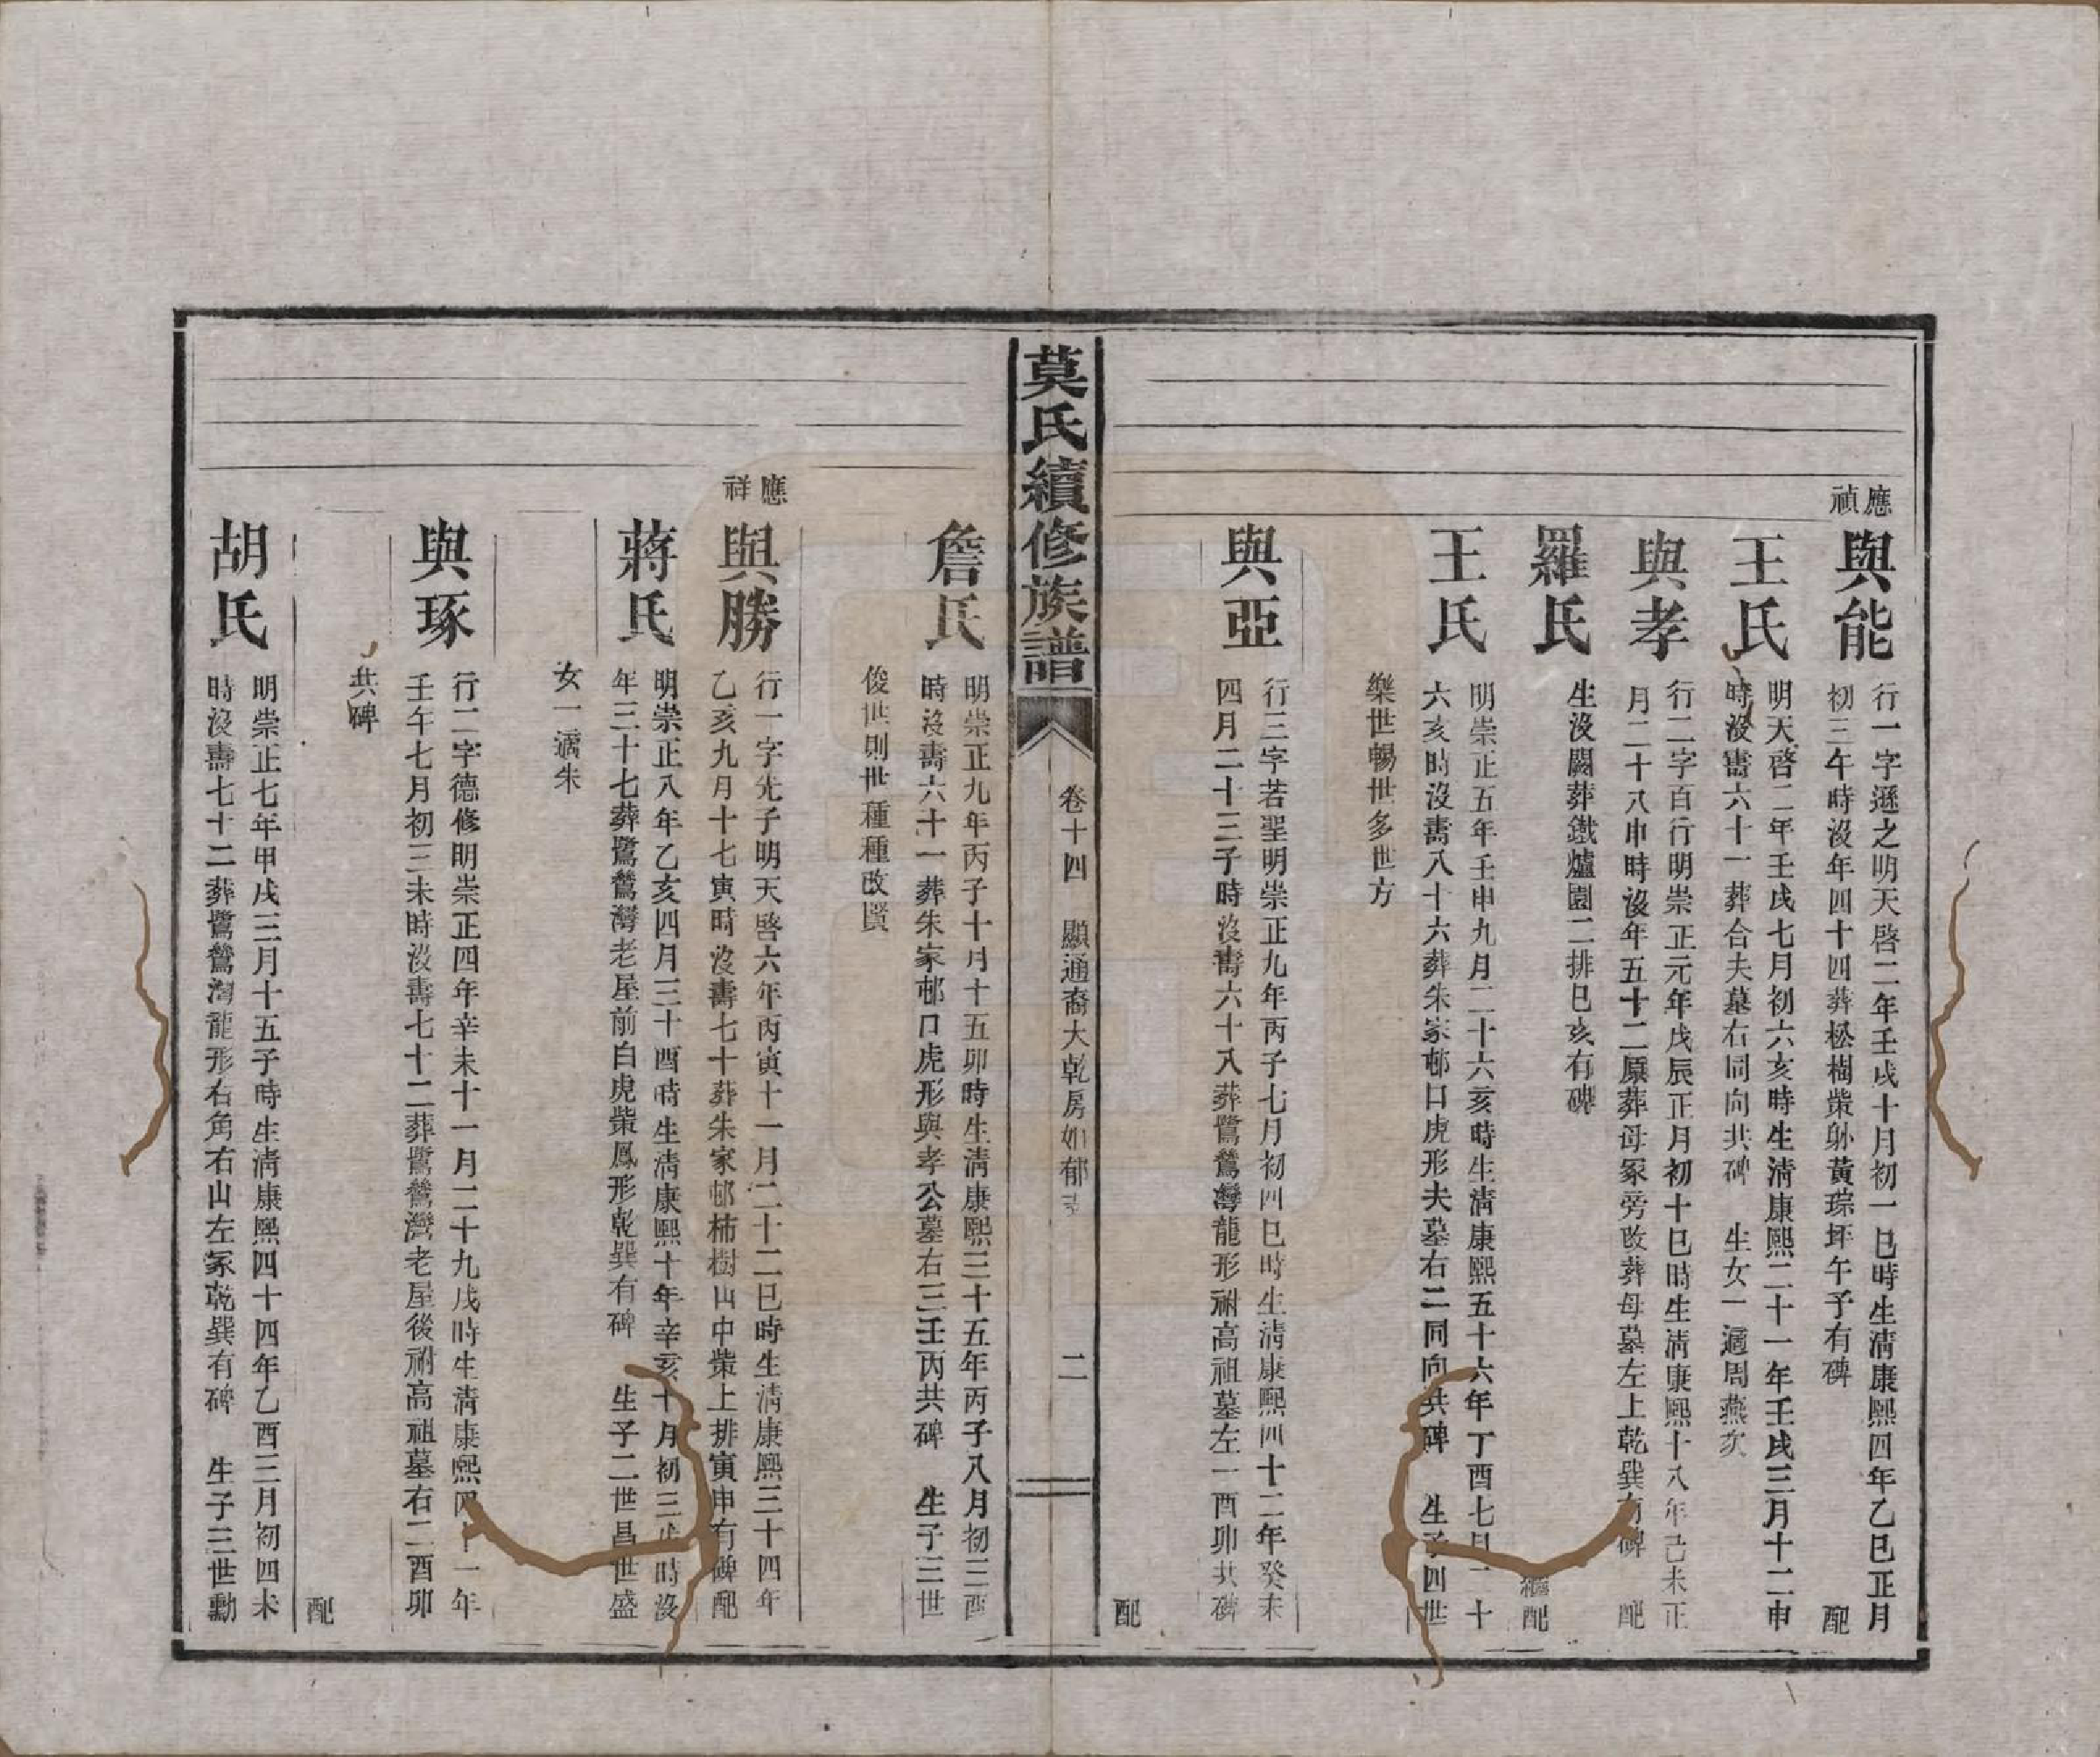 應禎
與能
行一字遜之明天啓二年壬戌十月初一巳時生淸康熙四年乙巳正月
初三午時沒年四十四葬松樹柴卧黃琮坪午子有碑 配
王氏
明天啓二年壬戌七月初六亥時生淸康熙二十一年壬戌三月十二申
時沒壽六十一葬合夫墓右同向共碑 生女一適周燕次
與孝
行二字百行明崇正元年戊辰正月初十巳時生淸康熙十八年己未正
月二十八申時沒年五十二原葬母冢旁改葬母墓左上乾巽有碑 配
羅氏
生沒闕葬鐵爐園二排巳亥有碑 繼配
王氏
明崇正五年壬申九月二十六亥時生淸康熙五十六年丁酉七月二十
六亥時沒壽八十六葬朱家邨口虎形夫墓右二同向共碑 生子四世
樂世暢世多世方
與亞
行三字若聖明崇正九年丙子七月初四巳時生淸康熙四十二年癸未
四月二十三子時沒壽六十八葬鷺鶿灣龍形祔高祖墓左一酉卯共碑
配
莫氏續修族譜
卷十四 顯通裔大乾房如郁
二
詹氏
明崇正九年丙子十月十五卯時生淸康熙三十五年丙子八月初三酉
時沒壽六十一葬朱家邨口虎形與孝公墓右三壬丙共碑 生子三世
俊世則世種種改賢
應祥
與勝
行一字先子明天啓六年丙寅十一月二十二巳時生淸康熙三十四年
乙亥九月十七寅時沒壽七十葬朱家邨柿樹山中柴上排寅申有碑配
蔣氏
明崇正八年乙亥四月三十酉時生淸康熙十年辛亥十月初三 時沒
年三十七葬鷺鶿灣老屋前白虎柴鳳形乾巽有碑 生子二世昌世盛
女一適朱
與琢
行二字德修明崇正四年辛未十一月二十九戌時生淸康熙四十一年
壬午七月初三未時沒壽七十二葬鷺鶿灣老屋後祔高祖墓右二酉卯
共碑
配
胡氏
明崇正七年甲戌三月十五子時生淸康熙四十四年乙酉三月初四未
時沒壽七十二葬鷺鶿灣龍形右角右山左冢乾巽有碑 生子三世勳